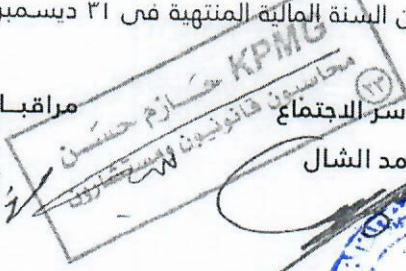 ن السنة المالية المنتهية في ٣١ ديسمبر
حازم حسن KPMG
محاسبون قانونيون ومستشارون
(١٣)
مراقبا
سر الاجتماع
مد الشال